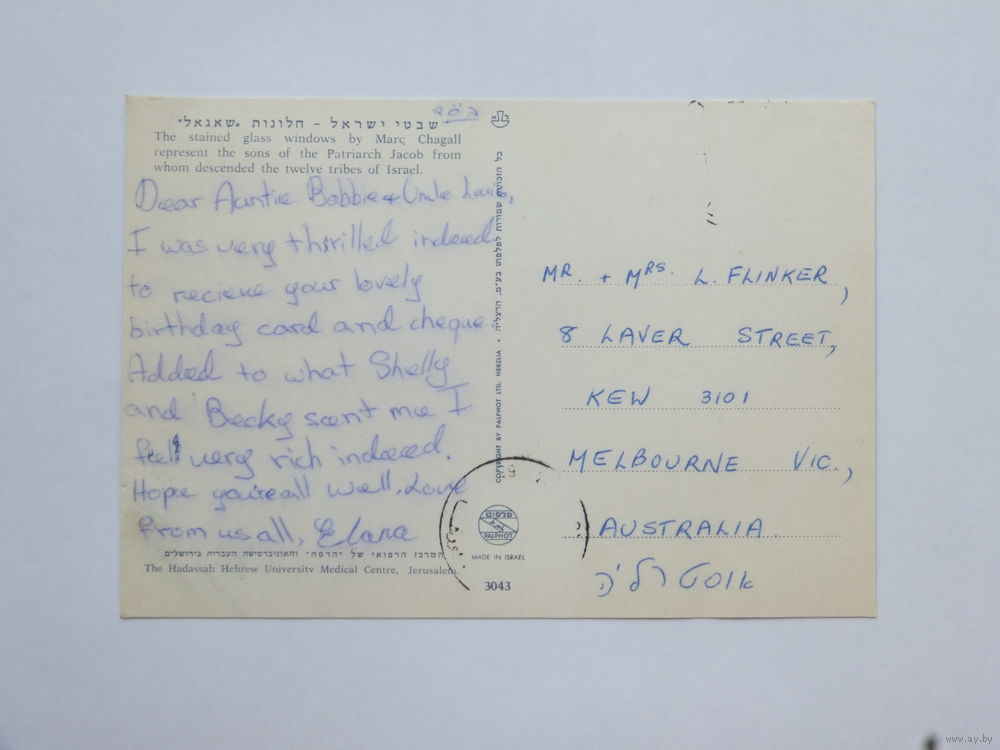 בס״ד
שבטי ישראל – חלונות „שאגאל"
The stained glass windows by Marc Chagall
represent the sons of the Patriarch Jacob from
whom descended the twelve tribes of Israel.
Dear Auntie Bobbie + Uncle Louis,
I was very thrilled indeed
to recieve your lovely
birthday card and cheque.
Added to what Shelly
and Becky sent me I
feel very rich indeed.
Hope you're all well. Love
from us all, Elana
המרכז הרפואי של "הדסה" והאוניברסיטה העברית בירושלים.
The Hadassah Hebrew University Medical Centre, Jerusalem.
כל הזכויות שמורות לפלפוט בע"מ. הרצליה • COPYRIGHT BY PALPHOT LTD. HERZLIA
פלפוט
PALPHOT
MADE IN ISRAEL
3043
MR. + MRS. L. FLINKER,
8 LAVER STREET,
KEW 3101
MELBOURNE VIC.,
AUSTRALIA
אוסטרליה
www.ay.by